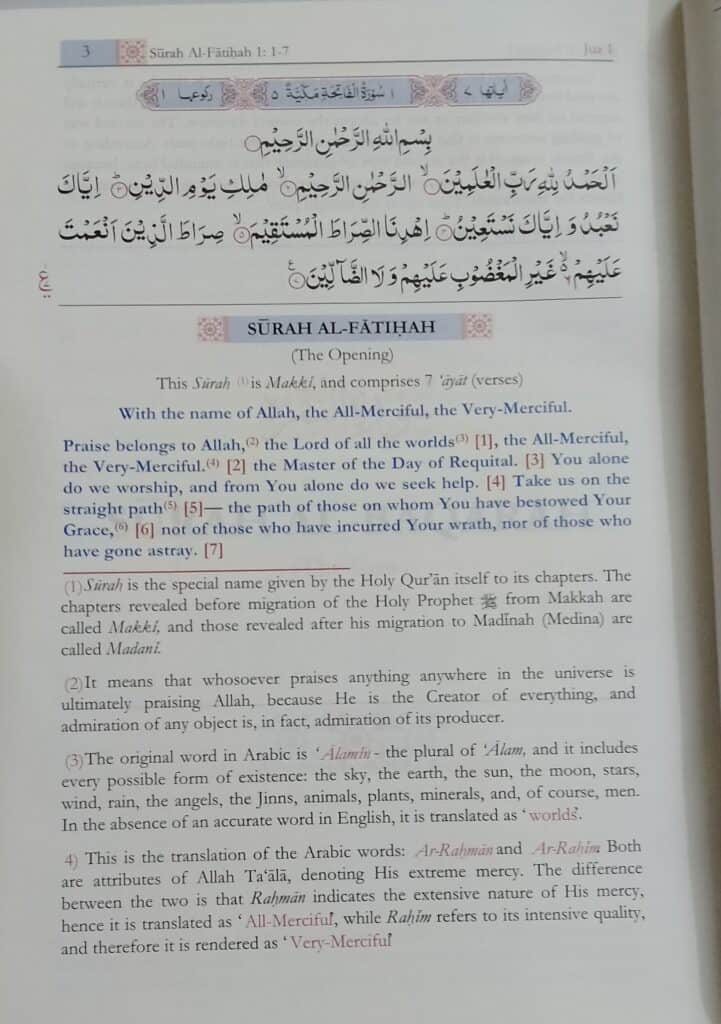 3 Sūrah Al-Fātiḥah 1: 1-7 Juz 1
اٰیاتها ٧ ١ سُوْرَةُ الْفَاتِحَةِ مَكِّيَّةٌ ٥ رکوعها ١
بِسْمِ اللّٰهِ الرَّحْمٰنِ الرَّحِيْمِ
اَلْحَمْدُ لِلّٰهِ رَبِّ الْعٰلَمِيْنَۙ﴿١﴾ الرَّحْمٰنِ الرَّحِيْمِۙ﴿٢﴾ مٰلِكِ يَوْمِ الدِّيْنِؕ﴿٣﴾ اِيَّاكَ
نَعْبُدُ وَ اِيَّاكَ نَسْتَعِيْنُؕ﴿٤﴾ اِهْدِنَا الصِّرَاطَ الْمُسْتَقِيْمَۙ﴿٥﴾ صِرَاطَ الَّذِيْنَ اَنْعَمْتَ
عَلَيْهِمْ۬ۙ﴿٦﴾ غَيْرِ الْمَغْضُوْبِ عَلَيْهِمْ وَ لَا الضَّآلِّيْنَ﴿٧﴾
SŪRAH AL-FĀTIḤAH
(The Opening)
This Sūrah (1) is Makkí, and comprises 7 ‘āyāt (verses)
With the name of Allah, the All-Merciful, the Very-Merciful.
Praise belongs to Allah,(2) the Lord of all the worlds(3) [1], the All-Merciful,
the Very-Merciful.(4) [2] the Master of the Day of Requital. [3] You alone
do we worship, and from You alone do we seek help. [4] Take us on the
straight path(5) [5]— the path of those on whom You have bestowed Your
Grace,(6) [6] not of those who have incurred Your wrath, nor of those who
have gone astray. [7]
(1)Sūrah is the special name given by the Holy Qur’ān itself to its chapters. The
chapters revealed before migration of the Holy Prophet ﷺ from Makkah are
called Makkí, and those revealed after his migration to Madīnah (Medina) are
called Madaní.
(2)It means that whosoever praises anything anywhere in the universe is
ultimately praising Allah, because He is the Creator of everything, and
admiration of any object is, in fact, admiration of its producer.
(3)The original word in Arabic is ‘Ālamīn - the plural of ‘Ālam, and it includes
every possible form of existence: the sky, the earth, the sun, the moon, stars,
wind, rain, the angels, the Jinns, animals, plants, minerals, and, of course, men.
In the absence of an accurate word in English, it is translated as ‘worlds’.
4) This is the translation of the Arabic words: Ar-Raḥmān and Ar-Raḥīm. Both
are attributes of Allah Ta‘ālā, denoting His extreme mercy. The difference
between the two is that Raḥmān indicates the extensive nature of His mercy,
hence it is translated as ‘All-Merciful’, while Raḥīm refers to its intensive quality,
and therefore it is rendered as ‘Very-Merciful’